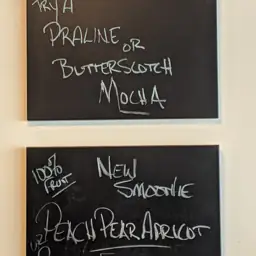 TRY A
PRALINE OR
BUTTERSCOTCH
MOCHA
100%
FRUIT
NEW
SMOOTHIE
PEACH PEAR APRICOT